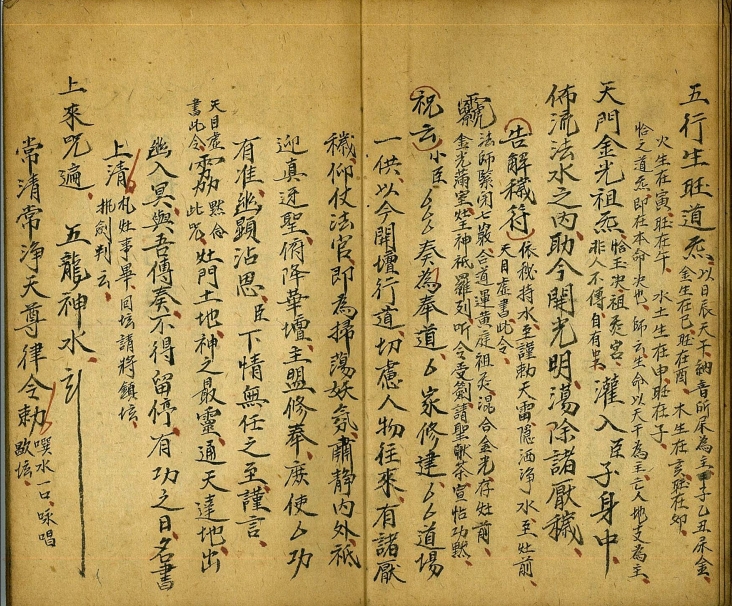 五行生旺道炁以日辰天干納音所屬為主甲子乙丑屬金金生在巳旺在酉木生在亥旺在卯
火生在寅旺在午水土生在申旺在子
恰之道炁即在本命次也師云生命以天干為主亡人地支為主
天門金光祖炁恰玉次祖炁宮非人不傳自有灌入臣子身中
佈流法水之内助今開光明蕩除諸厭穢
告解穢符依秘持水至謹勅天雷隱洒淨水至灶前天目虛書此令
法師緊閉七竅合道運黃庭祖炁混合金光存灶前
金光滿室灶王神祇羅列听令受劄請聖獻茶宣帖功默
祝云小臣厶厶奏為奉道厶家修建厶厶道場
一供以今開壇行道切慮人物往來有諸厭
穢仰仗法官即為掃蕩妖氛肅静内外祗
迎真迓聖俯降華壇主盟修奉庶使厶功
有准幽顯沾恩臣下情無任之至謹言
天目虛書此令默念此咒灶門土地神之最靈通天達地出
幽入冥與吾傳奏不得留停有功之日名書
上清札灶事畢回坛請將鎮坛挑劍判云
上來咒遍五龍神水
常清常淨天尊律令勅噀水一口咏唱歇坛